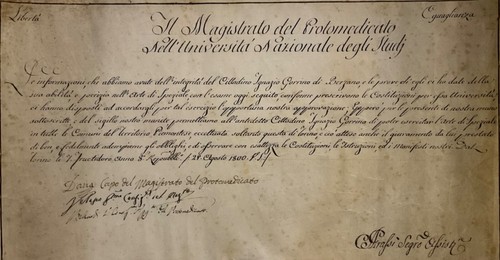 Libertà Eguaglianza
Il Magistrato del Protomedicato
Nell'Università Nazionale degli Studj
Le informazioni che abbiamo avute dell'integrità del Cittadino Ignazio Gorrino di Borzano, e le prove di egli ci ha date della
sua abilità e perizia nell'Arte di Speziale con l'esame oggi seguito conforme prescrivono le Costituzioni per essa Università
ci hanno disposti ad accordargli per tal esercizio l'opportuna nostra approvazione; Epperò per le presenti da nostra mano
sottoscritte, e del sigillo nostro munite permettiamo all'antidetto Cittadino Ignazio Gorrino di poter esercitar l'Arte di Speziale
in tutte le Comuni del Territorio Piemontese eccettuata soltanto questa di Torino; atteso anche il giuramento da lui prestato
di ben, e fedelmente adempierne gli obblighi, e di osservare con esattezza le Costituzioni le Istruzioni ed i Manifesti nostri Dat.
Torino li 7. Fruttidoro Anno 8. Repubb. 25 Agosto 1800.
Capo del Magistrato del Protomedicato
del
del Protomedicato
Segro